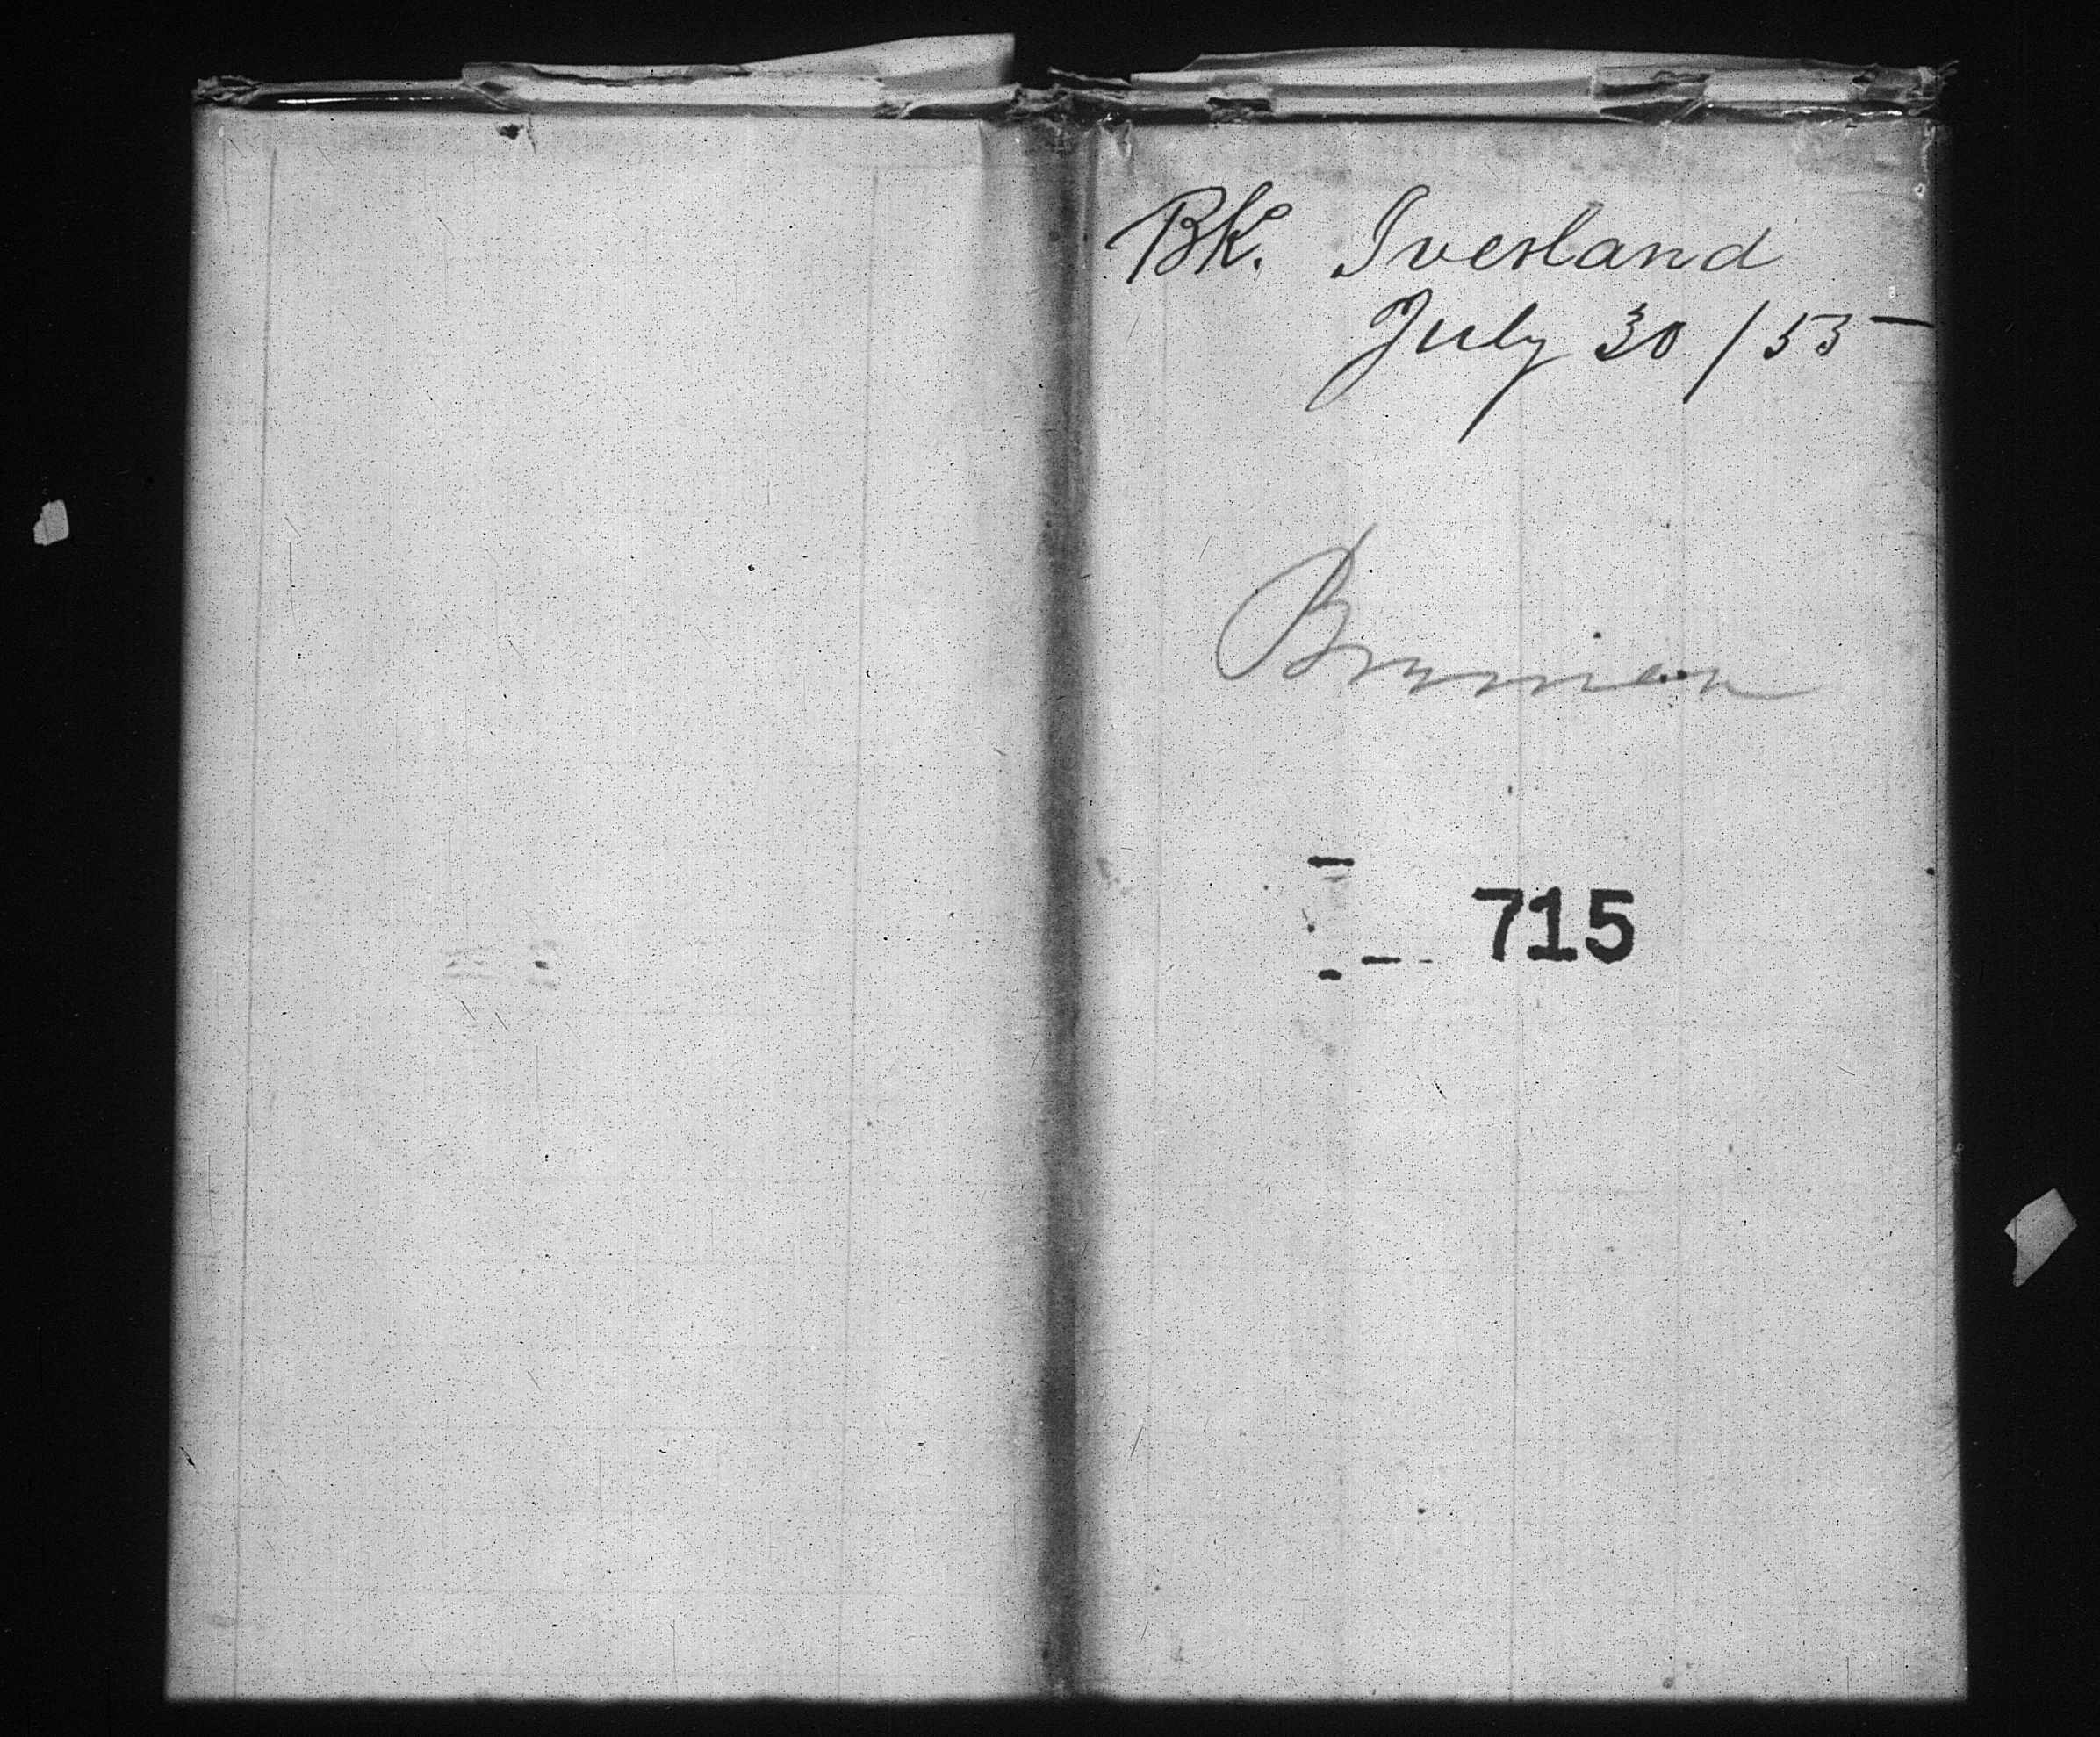 Bk. Iverland
July 30/55
Bremen
715